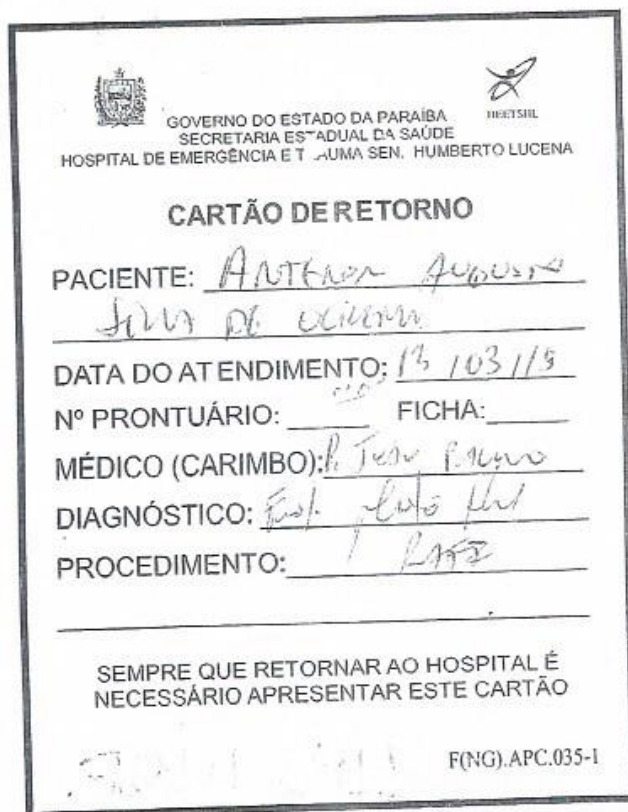 HEETSHL
GOVERNO DO ESTADO DA PARAÍBA
SECRETARIA ESTADUAL DA SAÚDE
HOSPITAL DE EMERGÊNCIA E T AUMA SEN. HUMBERTO LUCENA
CARTÃO DE RETORNO
PACIENTE: ANTENOR AUGUSTO
SILVA DE OLIVEIRA
DATA DO ATENDIMENTO: 13 / 03 / 15
Nº PRONTUÁRIO: FICHA:
MÉDICO (CARIMBO):
DIAGNÓSTICO:
PROCEDIMENTO:
SEMPRE QUE RETORNAR AO HOSPITAL É
NECESSÁRIO APRESENTAR ESTE CARTÃO
F(NG).APC.035-1